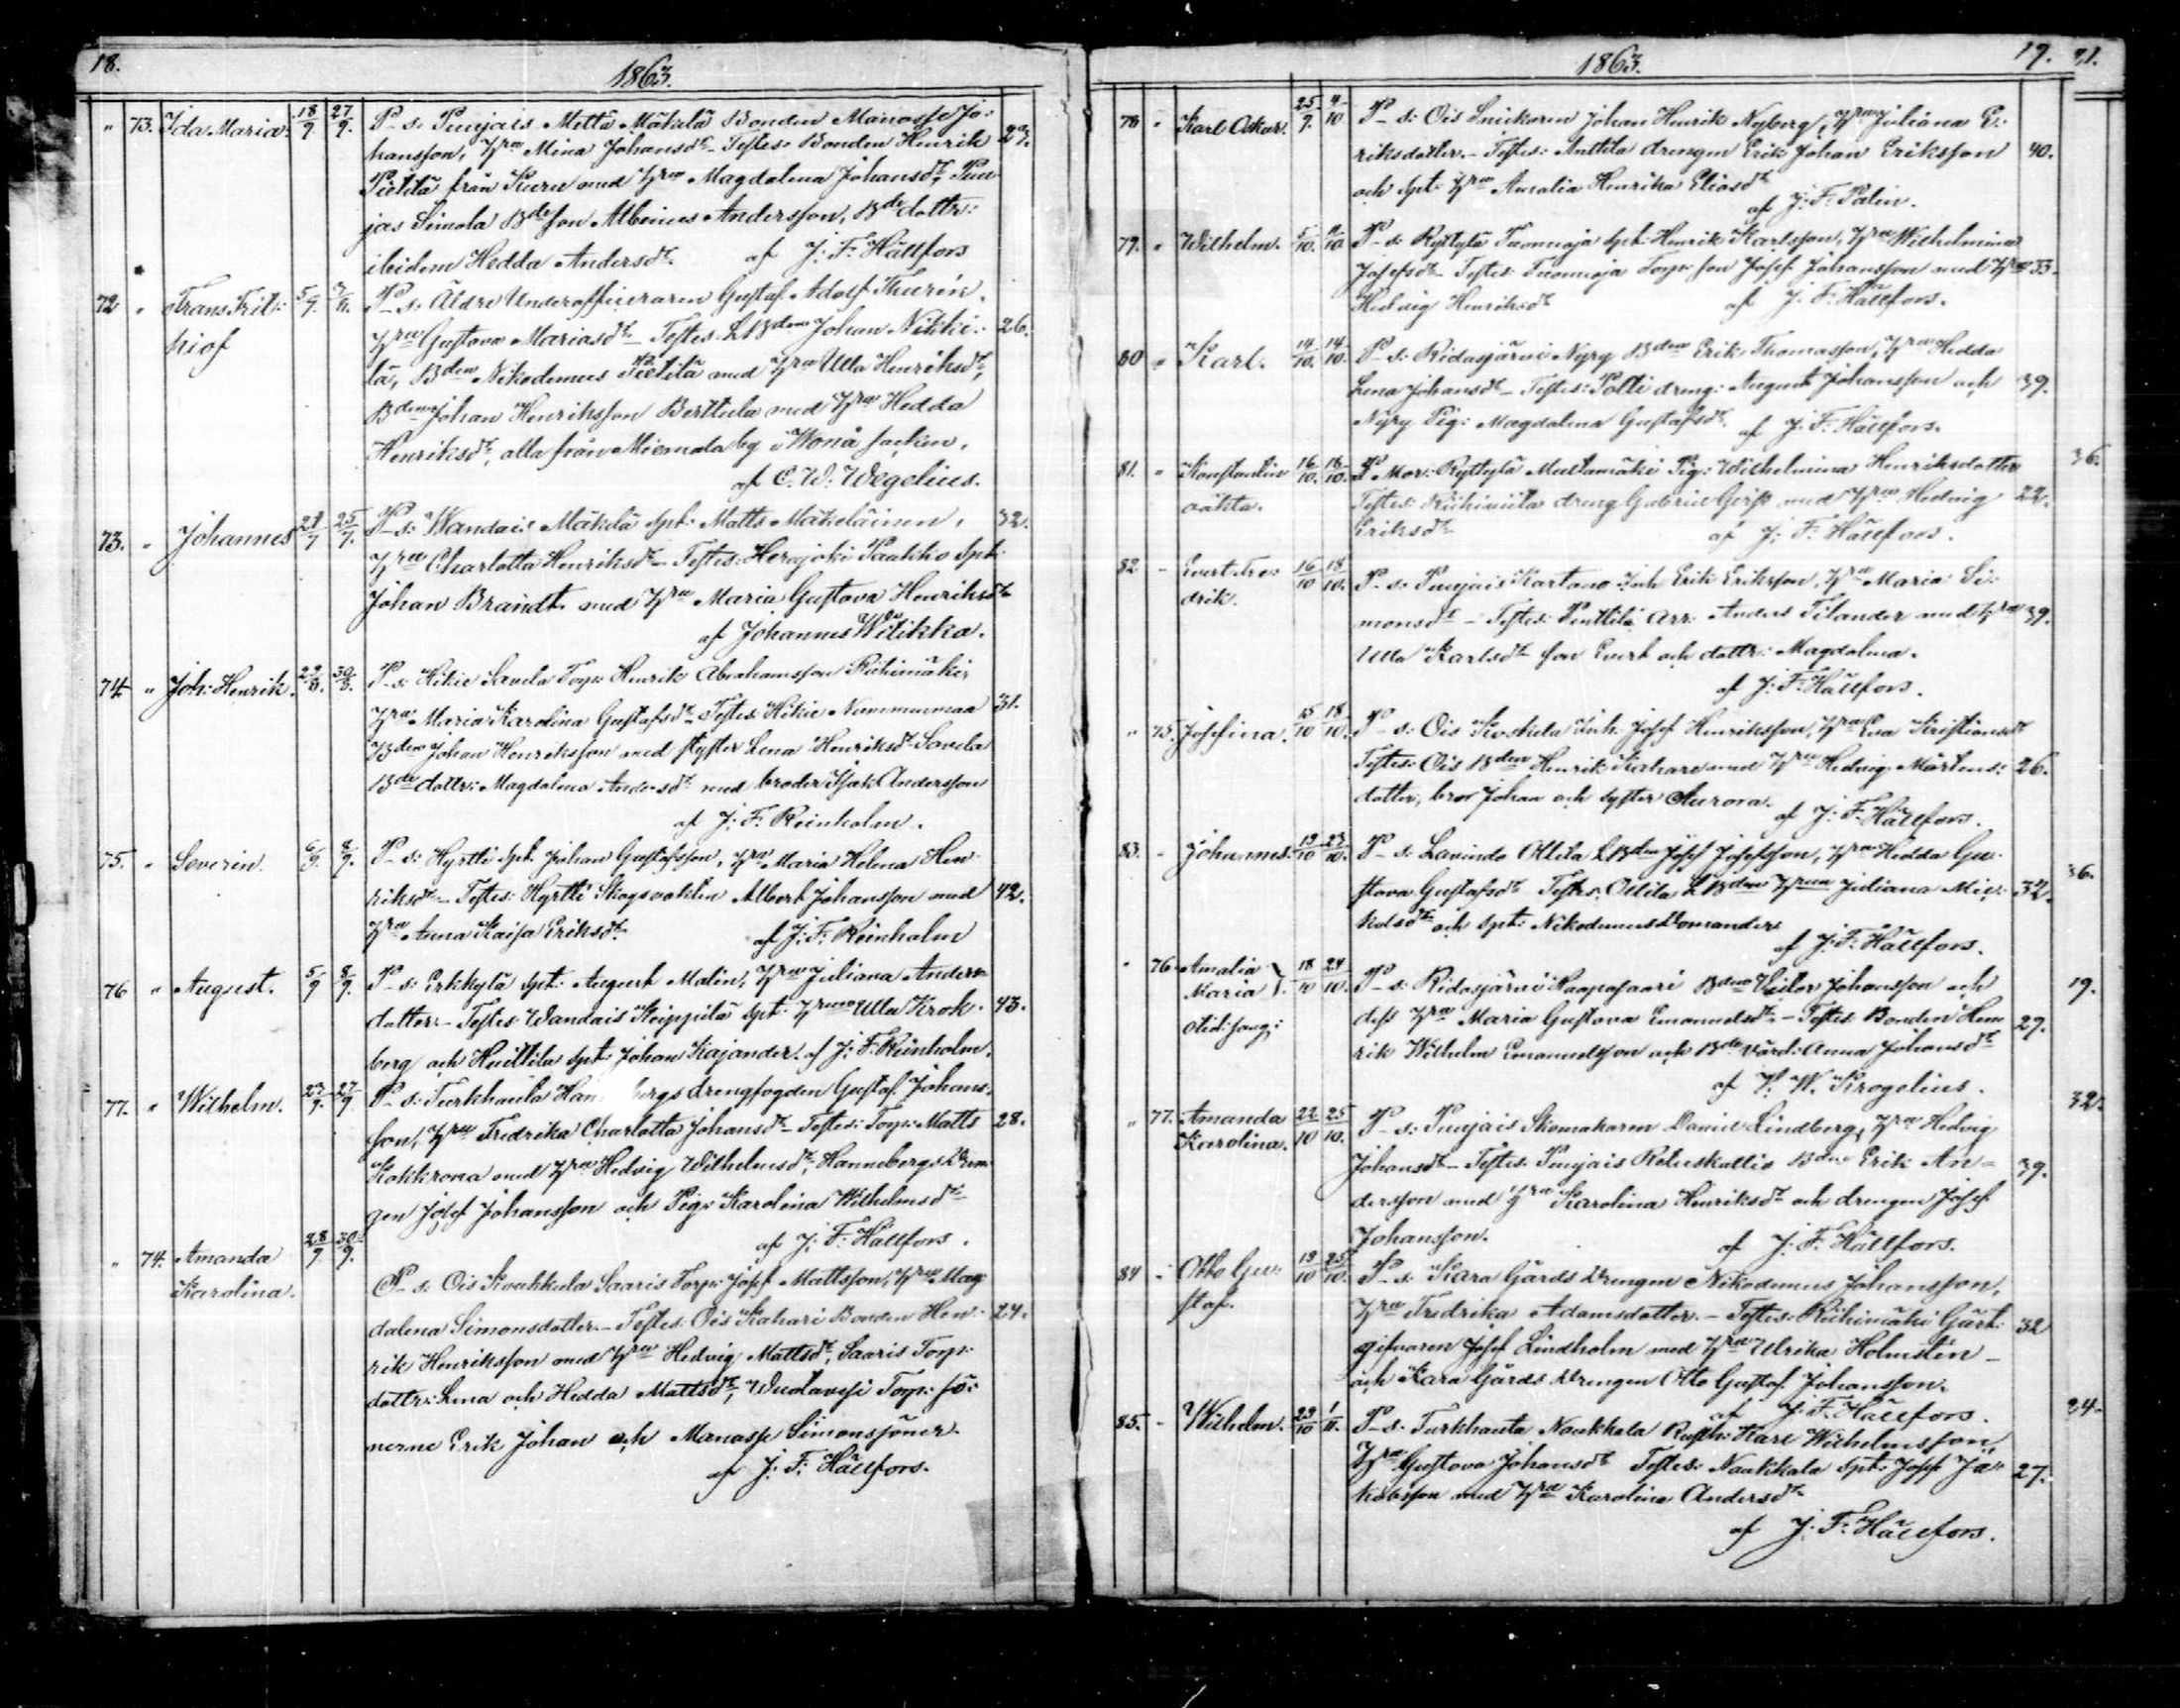 18.
1863.
" 73. Ida Maria. 18/9 27/9. P-s: Punjais Mettä Mäkelä Bonden Manasse Jo:
hansson, Hru Mina Johansdr – Testes: Bonden Henrik
Pietilä från Kuru med Hru Magdalena Johansdr, Pun
jas Simola Bdeson Albinus Andersson, Bde dottr:
ibidem Hedda Andersdr. af J: F: Hällfors
72 " Frans Frit: 5/7. P-s: Äldre Underofficeraren Gustaf Adolf Thurén,
hiof Hru Gustava Mariasdr – Testes: LBden Johan Nikki: 26.
lä, Bden Nikodemus Pietilä med Hru Ulla Henriksdr,
Bden Johan Henriksson Berttula med Hru Hedda
Henriksdr, alla från Miemala by i Wonå socken.
af E. W. Wegelius.
73. " Johannes 25/7. P-s: Wandais Mäkelä Spt: Matts Mäkeläinen, 32.
Hru Charlotta Henriksdr – Testes: Herajoki Paakko Spt:
Johan Brandt med Hru Maria Gustava Henriksdr
af Johannes Witikka.
74 " Joh: Henrik. 30/8. P-s: Hikie Savela Torp: Henrik Abrahamsson Riihimäki,
Hru Maria Karolina Gustafsdr – Testes: Hikie Nummenmaa 31.
Bden Johan Henriksson med syster Lena Henriksdr Savela
Bde dottr: Magdalena Andersdr med broder Isak Andersson
af J: F: Reinholm.
75. " Severin. 6/9. 8/9. P-s: Hyrtti Spt: Johan Gustafsson, Hru Maria Helena Hen
riksdr – Testes: Hyrtti Skogsvakten Albert Johansson med 42.
Hru Anna Kaisa Eriksdr. af J: F: Reinholm
76 " August. 5/9 8/9. P-s: Erkkylä Spt: August Malin, Hru Juliana Anders
dotter. – Testes Wandais Keippilä Spt: Hru Ulla Krok 43.
berg och Huittila Spt: Johan Kajander. af J: F: Reinholm.
77. " Wilhelm. 23/9. 27/9 P-s: Turkhauta Han bergs drengfogden Gustaf Johans
son, Hru Fredrika Charlotta Johansdr – Testes: Torp: Matts 28.
Kokkrona med Hru Hedvig Wilhelmsdr, Hannebergs Dren
gen Josef Johansson och Pig: Karolina Wilhelmsdr
af J: F: Hällfors.
" 74. Amanda 28/9 30/9. P-s: Ois Koukkula Saaris Torp: Josef Mattsson, Hru Mag
Karolina. dalena Simonsdotter. – Testes: Ois Kahari Bonden Hen 24.
rik Henriksson med Hru Hedvig Mattsdr, Saaris Torp:
dottr: Lena och Hedda Mattsdr, Torp: sö:
nerne Erik Johan och Manasse Simonssöner.
af J: F: Hällfors.
1863.
19. 21.
78 " Karl Oskar. 25/9. 4/10 P-s: Ois Snickaren Johan Henrik Nyberg, Hru Juliana E:
riksdotter. – Testes: Anttila drengen Erik Johan Eriksson 40.
och Spt: Hru Amalia Henrika Eliasdr
af J: F: Palin.
79. " Wilhelm. 5/10. P-s: Ryttylä Tuomioja Spt: Henrik Karlsson, Hru Wilhelmina
Josefsdr – Testes: Tuomioja Torp: son Josef Johansson med Hru 33.
Hedvig Henriksdr af J: F: Hällfors.
80 " Karl. 14/10. 14/10. P-s: Ridasjärvi Nyry Bden Erik Thomasson, Hru Hedda
Lena Johansdr – Testes: Poltti dreng: August Johansson och 39.
Nyry Pig: Magdalena Gustafsdr. af J: F: Hällfors.
81. " Konstantin 16/10. 18/10. P Mor: Ryttylä Multamäki Pig: Wilhelmina Henriksdotter 36.
oäkta. Testes: Riihiviita dreng Gabriel med Hru Hedvig 22.
Eriksdr af J: F: Hällfors.
82 – Evert Fre: 16/10 18/10. P-s: Punjais Kartano Inh Erik Eriksson, Hru Maria Si:
drik. monsdr – Testes: Penttilä Arr: Anders Tilander med Hru 39.
Ulla Karlsdr son Evert och dottr: Magdalena.
af J: F: Hällfors.
" 75. Josefina. 15/10 18/10. P-s: Ois Koskela Inh: Josef Henriksson, Hru Eva Kristiansdr
Testes: Ois Bden Henrik Kahare med Hru Hedvig Mårtens: 26.
dotter, bror Johan och syster Aurora.
af J: F: Hällfors.
83. – Johannes. 19/10 23/10. P-s: Lavinto Ollila LBden Josef Josefsson, Hru Hedda Gu: 36.
stava Gustafsdr Testes: Ollila LBden Hru Juliana Mic: 32.
kelsdr och Spt: Nikodemus Domander
af J: F: Hällfors.
" 76. Amalia 18/10 24/10. P-s: Ridasjärvi Haapasaari Bden Viktor Johansson och 19.
Maria dess Hru Maria Gustava Emanuelsdr. – Testes: Bonden Hen 29.
rik Wilhelm Emanuelsson och Bde värd: Anna Johansdr
af W. Krogelius.
" 77. Amanda 22/10 25/10. P-s: Punjais Skomakaren Daniel Lindberg, Hru Hedvig 32.
Karolina. Johansdr – Testes: Punjais Reluskallio Bden Erik An= 39.
dersson med Hru Karolina Henriksdr och drengen Josef
Johansson. af J: F: Hällfors.
84 – Otto Gu: 19/10 25/10. P-s: Kara Gårds Drengen Nikodemus Johansson,
staf. Hru Fredrika Adamsdotter. – Testes: Riihimäki Gäst: 32
gifvaren Josef Lindholm med Hru Ulrika Holmstén –
och Kara Gårds Drengen Otto Gustaf Johansson.
af J: F: Hällfors.
85. – Wilhelm. 29/10 1/11. P-s: Turkhauta Naukkala Rusth: Karl Wilhelmsson, 24.
Hru Gustava Johansdr Testes: Naukkala Spt: Josef Ja: 27.
kobsson med Hru Karolina Andersdr
af J: F: Hällfors.